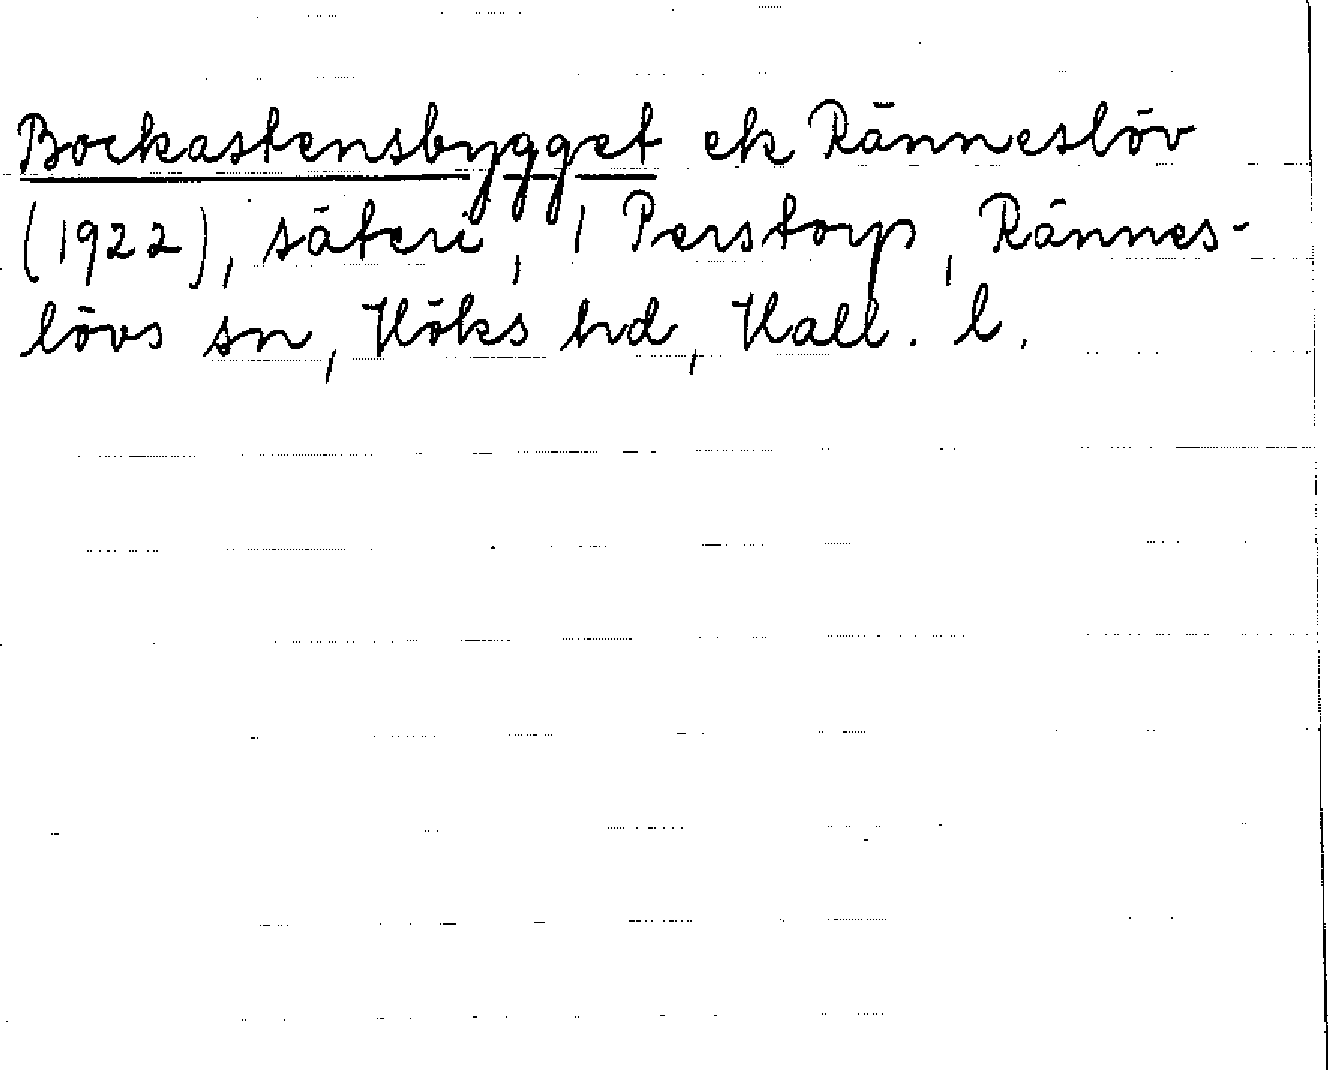 Bockastensbygget ek Ränneslöv
(1922), säteri, 1 Perstorp, Rännes-
lövs sn, Höks hd, Hall. l.